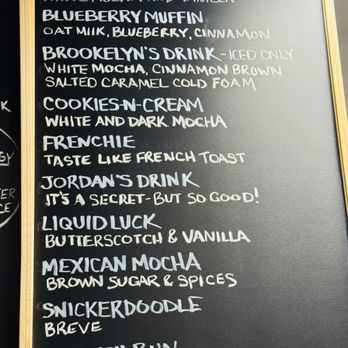 BLUEBERRY MUFFIN
OAT MILK, BLUEBERRY, CINNAMON
BROOKELYN'S DRINK - ICED ONLY
WHITE MOCHA, CINNAMON BROWN
SALTED CARAMEL COLD FOAM
COOKIES-N-CREAM
WHITE AND DARK MOCHA
FRENCHIE
TASTE LIKE FRENCH TOAST
JORDAN'S DRINK
IT'S A SECRET-BUT SO GOOD!
LIQUID LUCK
BUTTERSCOTCH & VANILLA
MEXICAN MOCHA
BROWN SUGAR & SPICES
SNICKERDOODLE
BREVE